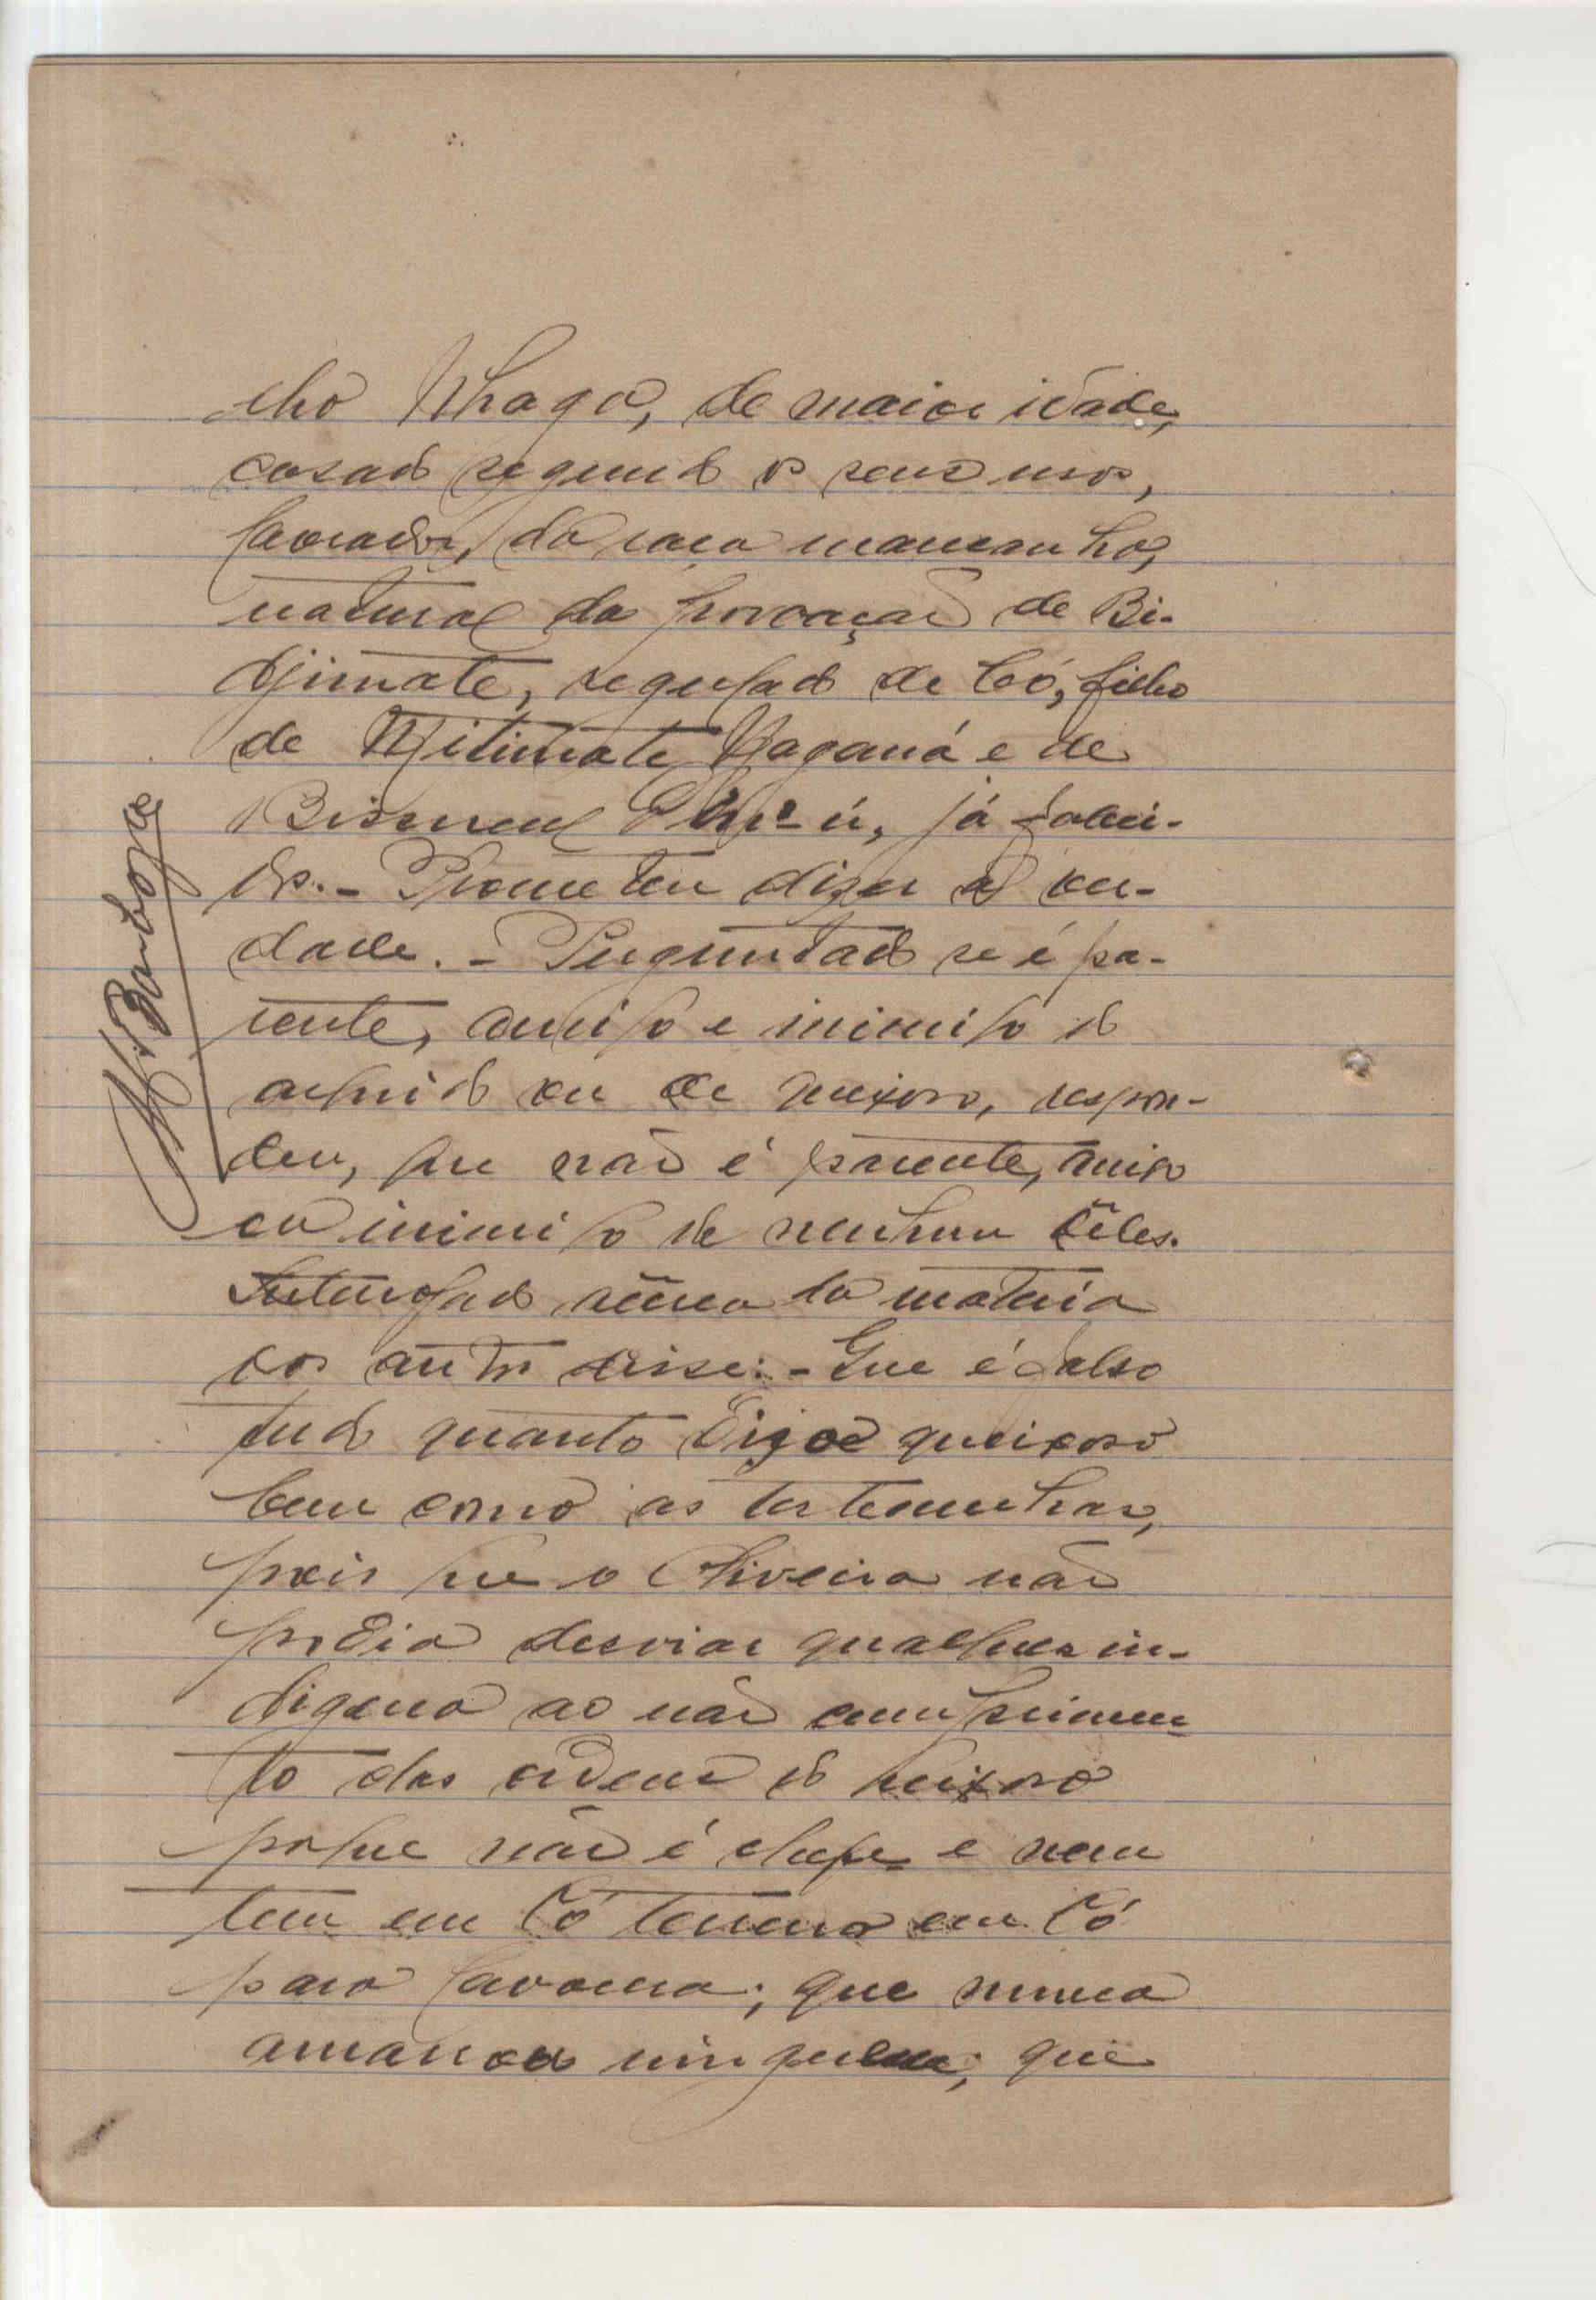 cho Nhaga, de maior idade,
casado segundo os seus usos,
lavrador, da raça mancanha,
natural da povoação de Bi-
djimate, regulado de Có, filho
de Ntimate Naganá e de
Bismeul já faleci-
dos. - Prometeu dizer a ver-
dade. - Perguntado se é pa-
rente, amigo e inimigo do
arguido ou de queixoso, respon-
deu, que não é parente, amigo
ou inimigo de nenhum dêles.
Interrogado àcêrca da matéria
dos autos disse: - Que é falso
tudo quanto diz o queixoso
bem como as testemunhas,
pois que o Oliveira não
podia desviar qualquer in-
digena ao não cumprimen-
to das ordens do queixoso
porque não é chefe e nem
tem em Có terreno em Có
para lavoura; que nunca
amarrou ninguem; que
M. Barbosa